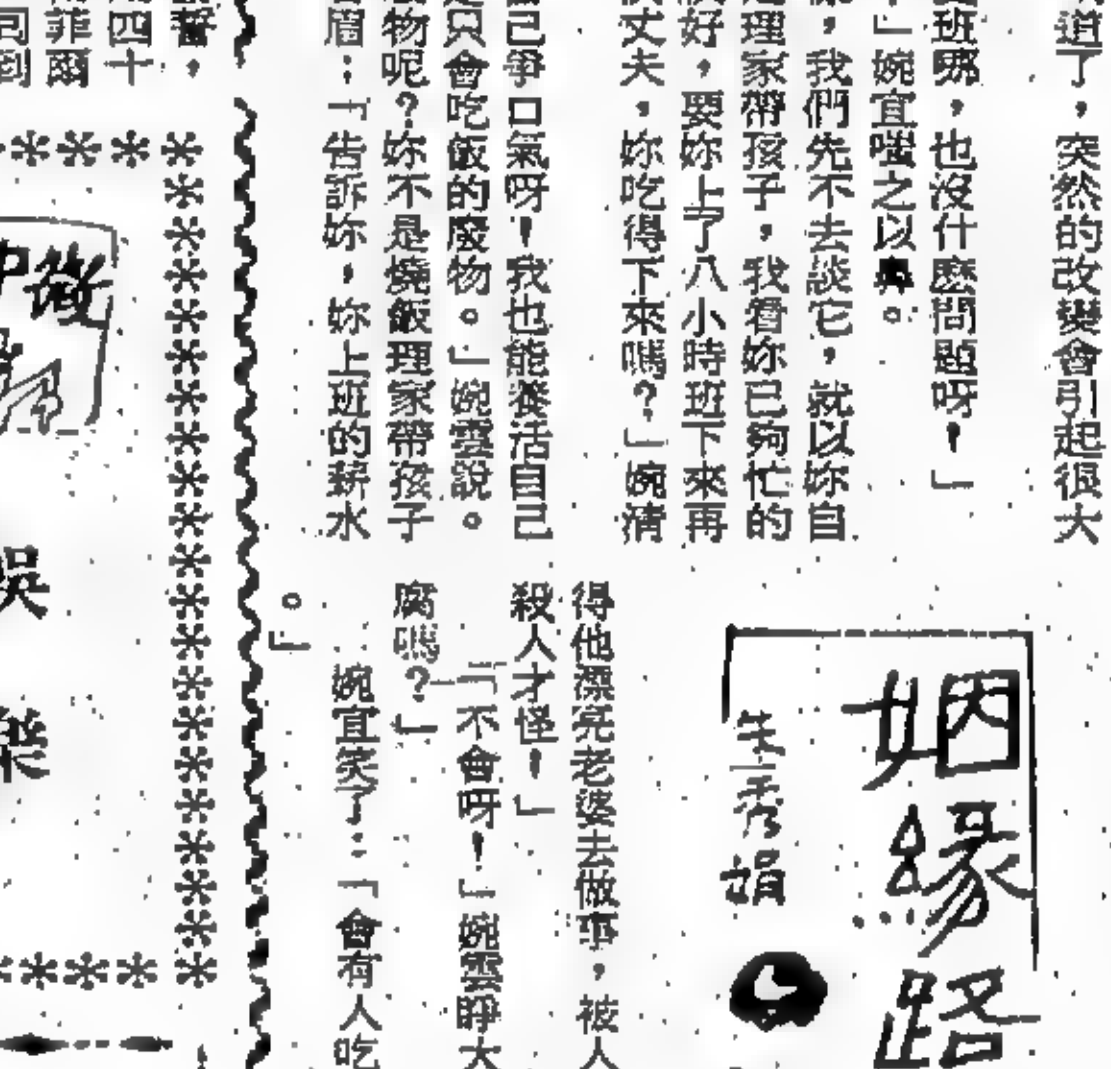 道了，突然的改變會引起很大
班嘛，也沒什麼問題呀！」
」婉宜嗤之以鼻。
，我們先不去談它，就以妳自
理家帶孩子，我看妳已夠忙的
好，要妳上了八小時班下來再
丈夫，妳吃得下來嗎？」婉清
己爭口氣呀！我也能養活自己
只會吃飯的廢物。」婉雲說。
物呢？妳不是燒飯理家帶孩子
眉：「告訴妳，妳上班的薪水
姻緣路
朱秀娟
得他漂亮老婆去做事，被人
殺人才怪！」
「不會呀！」婉雲睜大
腐嗎？」
婉宜笑了：「會有人吃
。」
誓，
四十
菲爾
同到
娛樂